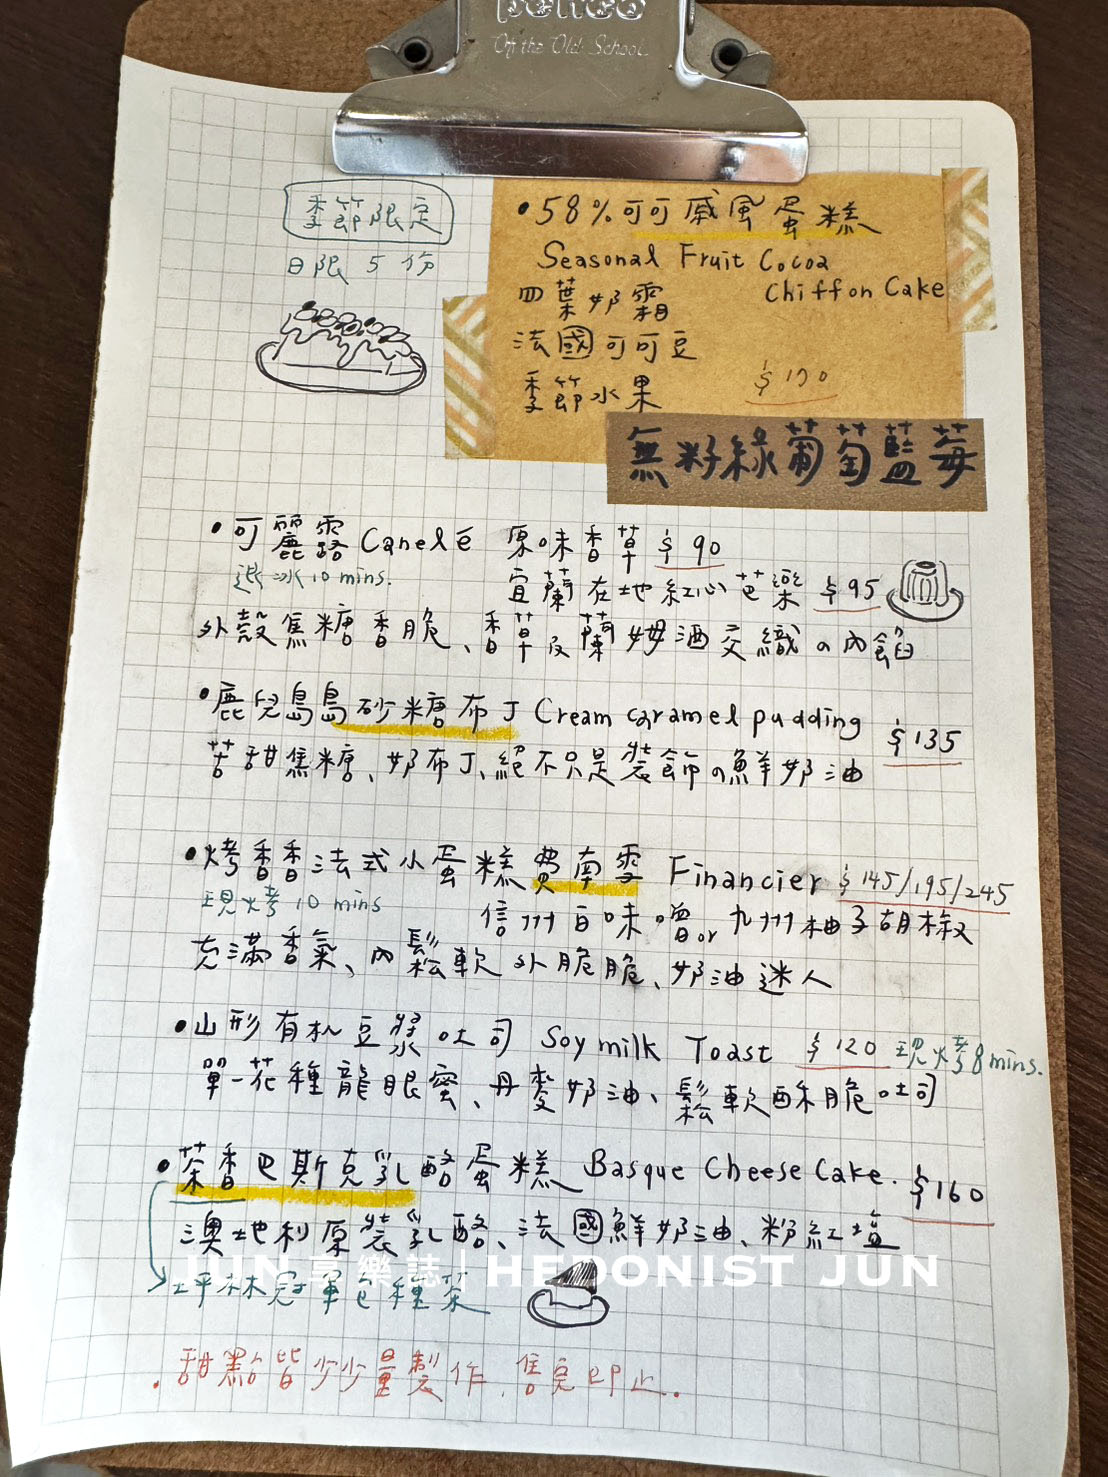 penco
Off the Old School.
季節限定
日限 5 份
•58%可可戚風蛋糕
Seasonal Fruit Cocoa
Chiffon Cake
四葉奶霜
法國可可豆
季節水果
$170
無籽綠葡萄藍莓
•可麗露 Canelé 原味香草 $90
退冰10 mins.
宜蘭在地紅心芭樂 $95
外殼焦糖香脆、香草及蘭姆酒交織の內餡
•鹿兒島島砂糖布丁 Cream caramel pudding $135
苦甜焦糖、奶布丁、絕不只是裝飾の鮮奶油
•烤香香法式小蛋糕費南雪 Financier $145/195/245
現烤10 mins
信州白味噌or九州柚子胡椒
充滿香氣、內鬆軟外脆脆、奶油迷人
•山形有机豆漿吐司 Soy milk Toast $120 現烤8mins.
單一花種龍眼蜜、丹麥奶油、鬆軟酥脆吐司
•茶香巴斯克乳酪蛋糕 Basque Cheese Cake. $160
澳地利原裝乳酪、法國鮮奶油、粉紅塩
JUN 享樂誌 | HEDONIST JUN
坪林冠軍包種茶
.甜點皆少少量製作,售完即止.